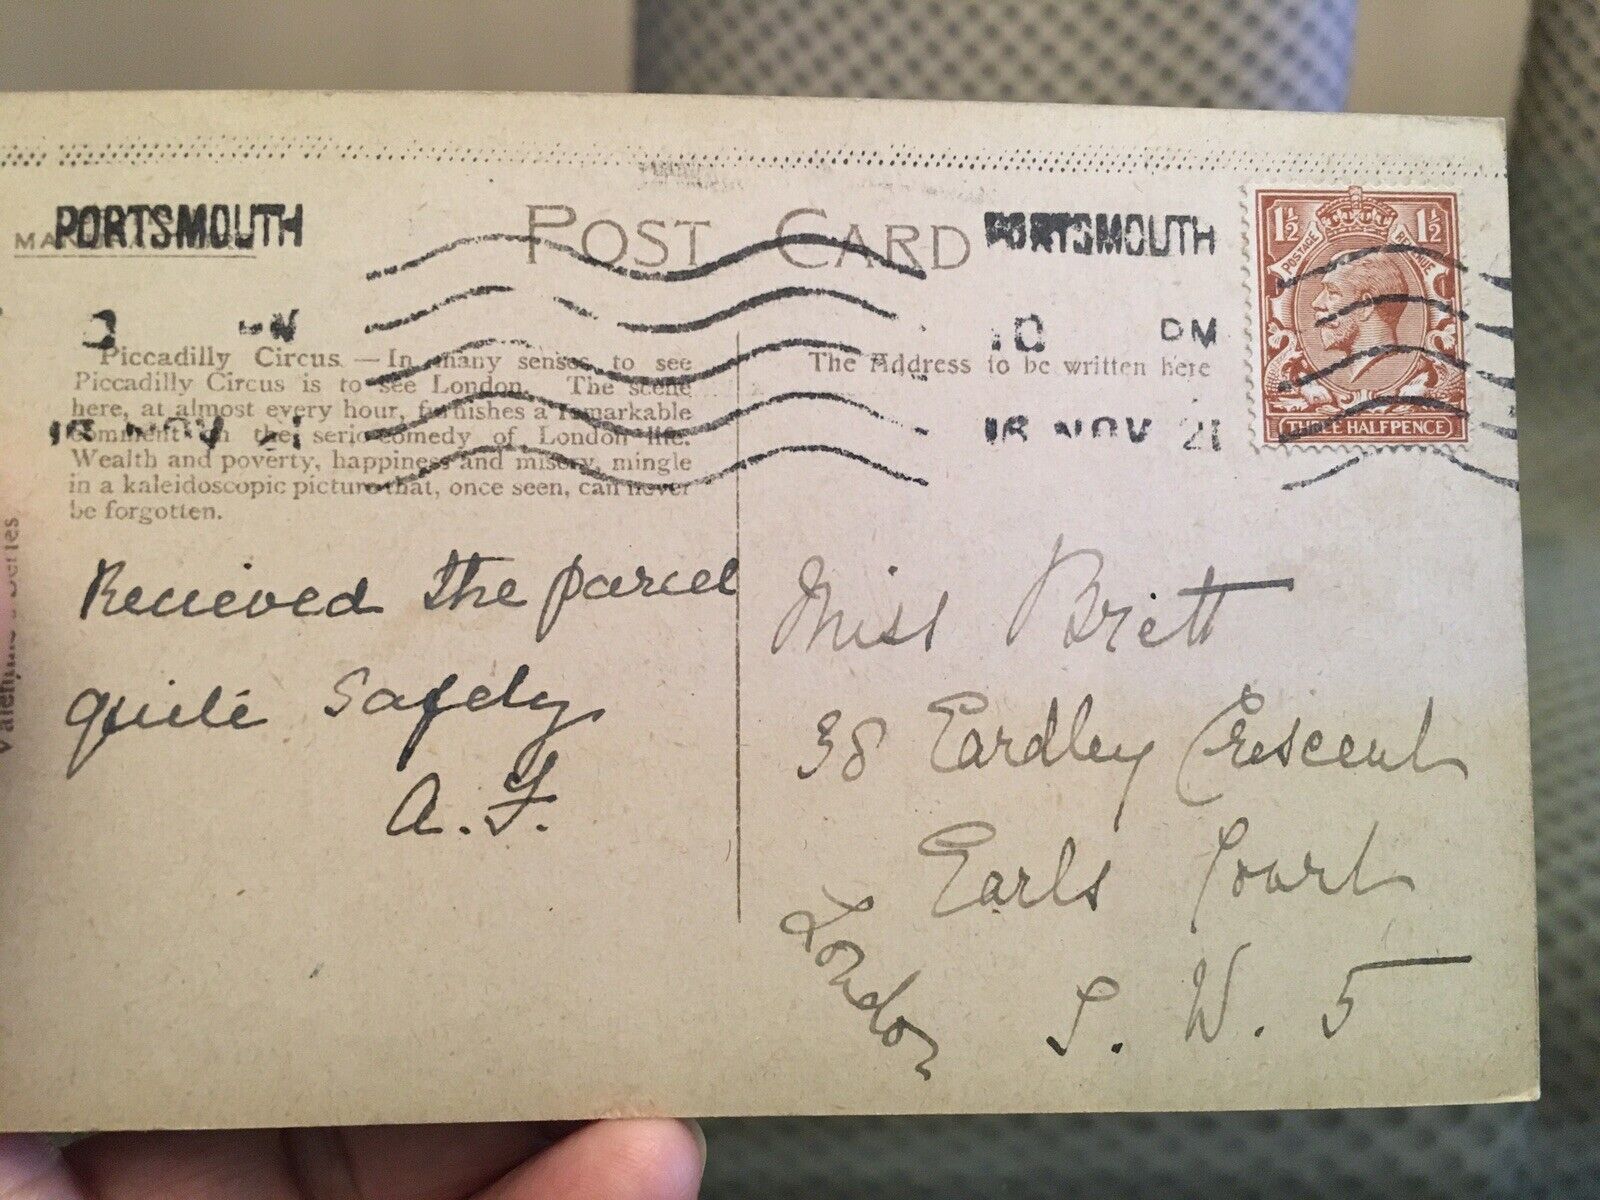 PORTSMOUTH
POST CARD
PORTSMOUTH
10 PM
16 NOV 21
16 NOV 21
1½ 1½
POSTAGE REVENUE
THREE HALFPENCE
Piccadilly Circus.—In many senses to see
Piccadilly Circus is to see London. The scene
here, at almost every hour, furnishes a remarkable
comment on the serio-comedy of London life.
Wealth and poverty, happiness and misery, mingle
in a kaleidoscopic picture that, once seen, can never
be forgotten.
The Address to be written here
Valentine's Series
Recieved the parcel
quite safely
A.F.
Miss Brett
38 Eardley Crescent
Earls Court
London
S. W. 5